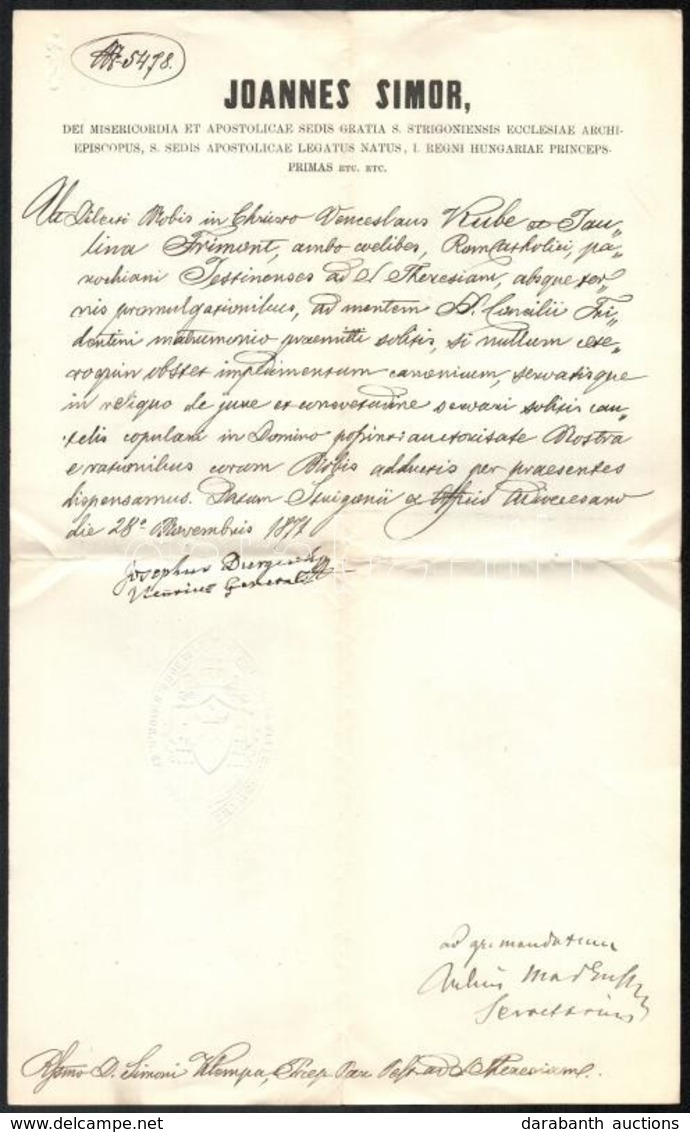 № 5478.
JOANNES SIMOR,
DEI MISERICORDIA ET APOSTOLICAE SEDIS GRATIA S. STRIGONIENSIS ECCLESIAE ARCHI-
EPISCOPUS, S. SEDIS APOSTOLICAE LEGATUS NATUS, I. REGNI HUNGARIAE PRINCEPS-
PRIMAS ETC. ETC.
Ut Dilecti Nobis in Christo Venceslaus Kube et Pau„
lina Frimont, ambo coelibes, Rom Catholici, pa„
rochiani Pestinenses ad S Theresiam, absque ter„
nis promulgationibus, ad mentem S. Concilii Tri„
dentini matrimonio praemitti solitis, si nullum cae„
roquin obstet impedimentum canonicum, servatisque
in reliquo de jure et consvetudine servari solitis cau„
telis copulari in Domino possint: auctoritate Nostra
e rationibus coram Nobis adductis per praesentes
dispensamus. Datum Strigonii ex Officio Dioecesano
die 28a Novembris 1871
Josephus
Vicarius Generalis
ad gr. mandatum
Julius
Secretarius
D. Simoni Klempa, Praep. Par Pest ad S Theresiam.
darabanth auctions